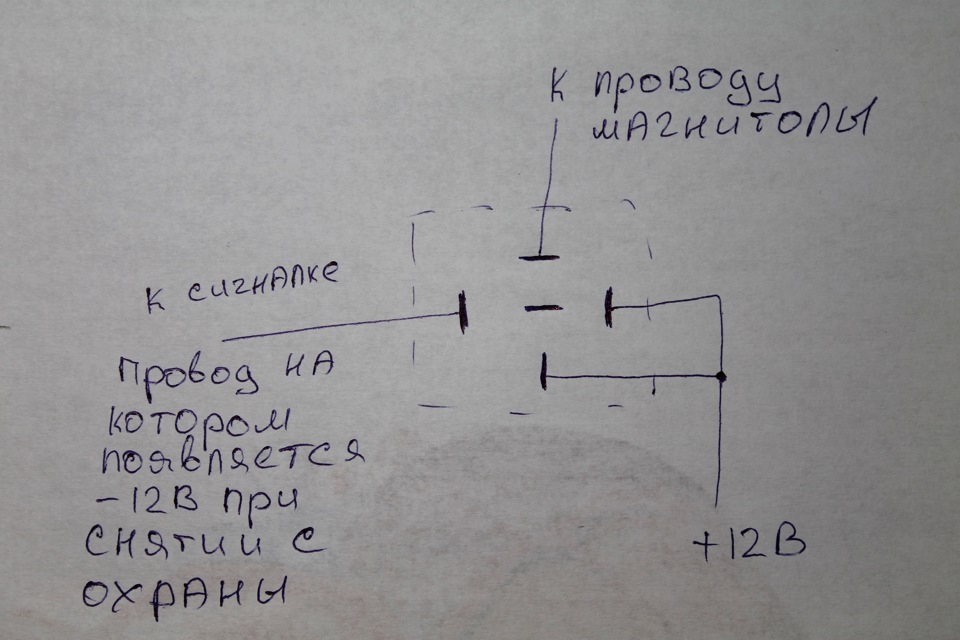 К ПРОВОДУ
МАГНИТОЛЫ
К СИГНАЛКЕ
ПРОВОД НА
КОТОРОМ
ПОЯВЛЯЕТСЯ
-12В ПРИ
СНЯТИИ С
ОХРАНЫ
+12В